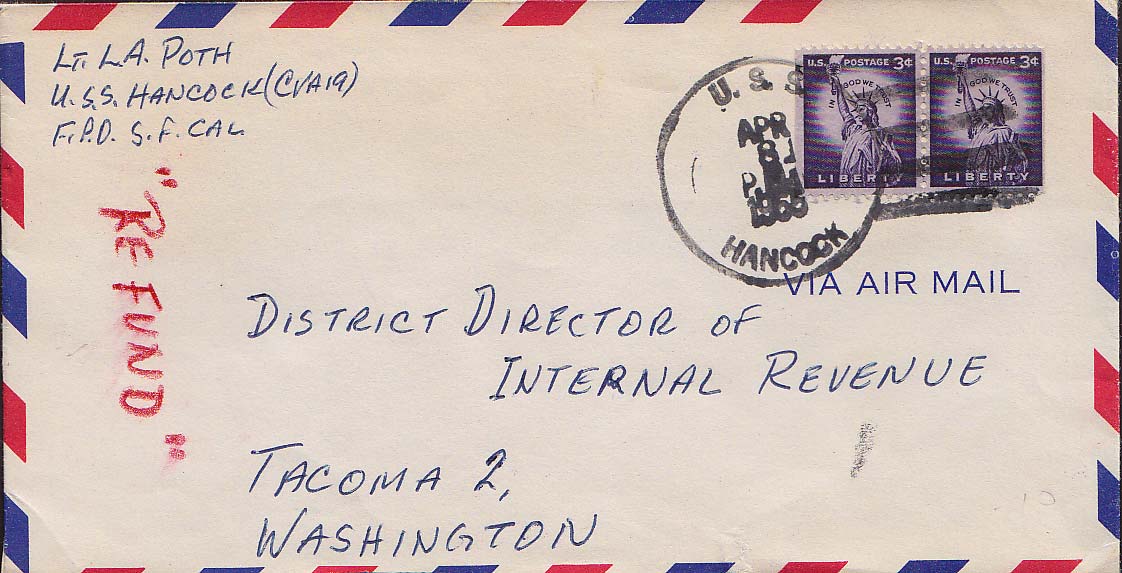 LT. L.A. POTH
U.S.S. HANCOCK (CVA19)
F.P.O. S.F. CAL
U.S. POSTAGE 3¢
IN GOD WE TRUST
LIBERTY
U.S. POSTAGE 3¢
IN GOD WE TRUST
LIBERTY
U. S. S.
APR
8
P.M
HANCOCK
VIA AIR MAIL
"REFUND"
DISTRICT DIRECTOR OF
INTERNAL REVENUE
TACOMA 2,
WASHINGTON